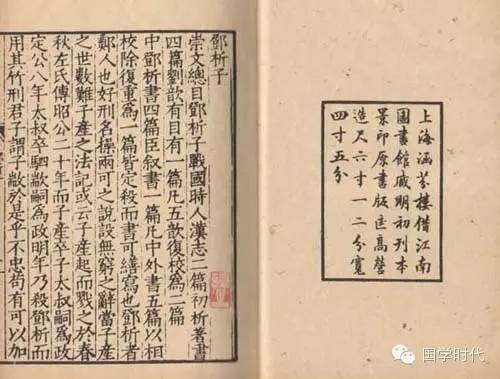 上海涵芬樓借江南
圖書館臧明初刊本
景印原書版匡高營
造尺六寸一二分寬
四寸五分
鄧析子
崇文總目鄧析子戰國時人漢志二篇初析著書
四篇劉歆有目有一篇凡五歆復校爲二篇
中鄧析書四篇臣叙書一篇凡中外書五篇以相
校除復重爲一篇皆定殺而書可繕寫也鄧析者
鄭人也好刑名操兩可之說設無窮之辭當子產
之世數難子產之法記或云子產起而戮之於春
秋左氏傳昭公二十年而子產卒子太叔嗣爲政
定公八年太叔卒駟歂嗣爲政明年乃殺鄧析而
用其竹刑君子謂子歂於是乎不忠苟有可以加
国学时代